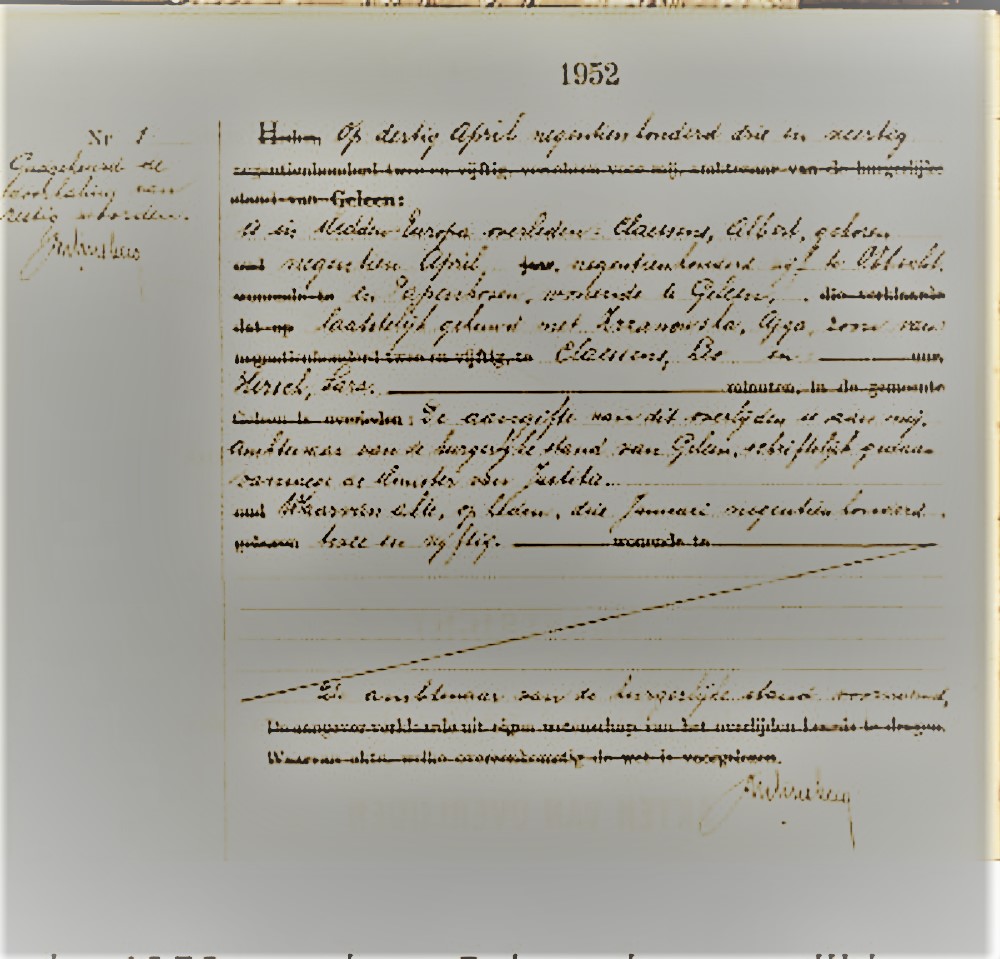 1952
Nr 1
Goedgekeurd de
doorhaling van
woorden.
Heden, Op dertig April negentienhonderd drie en veertig
negentienhonderd twee en vijftig, verscheen voor mij, ambtenaar van de burgerlijke
stand van Geleen:
is in Midden-Europa overleden: Claessens, Albert, geboren
oud negentien April, jaar, negentienhonderd vijf te Obbicht
en Papenhoven, wonende te Geleen, die verklaarde
dat op laatstelijk gehuwd met Ajga, zoon van
negentienhonderd twee en vijftig, te Claessens, Leo en uur,
Hersch, Sara. minuten, in de gemeente
Geleen is overleden: De aangifte van dit overlijden is aan mij,
ambtenaar van de burgerlijke stand van Geleen, schriftelijk gedaan
vanwege de Minister van Justitie.
oud Waarvan akte, op heden, drie Januari negentienhonderd
geboren twee en vijftig. wonende te
De ambtenaar van de burgerlijke stand voornoemd,
De aangever verklaarde uit eigen wetenschap van het overlijden kennis te dragen.
Waarvan akte, welke overeenkomstig de wet is voorgelezen.